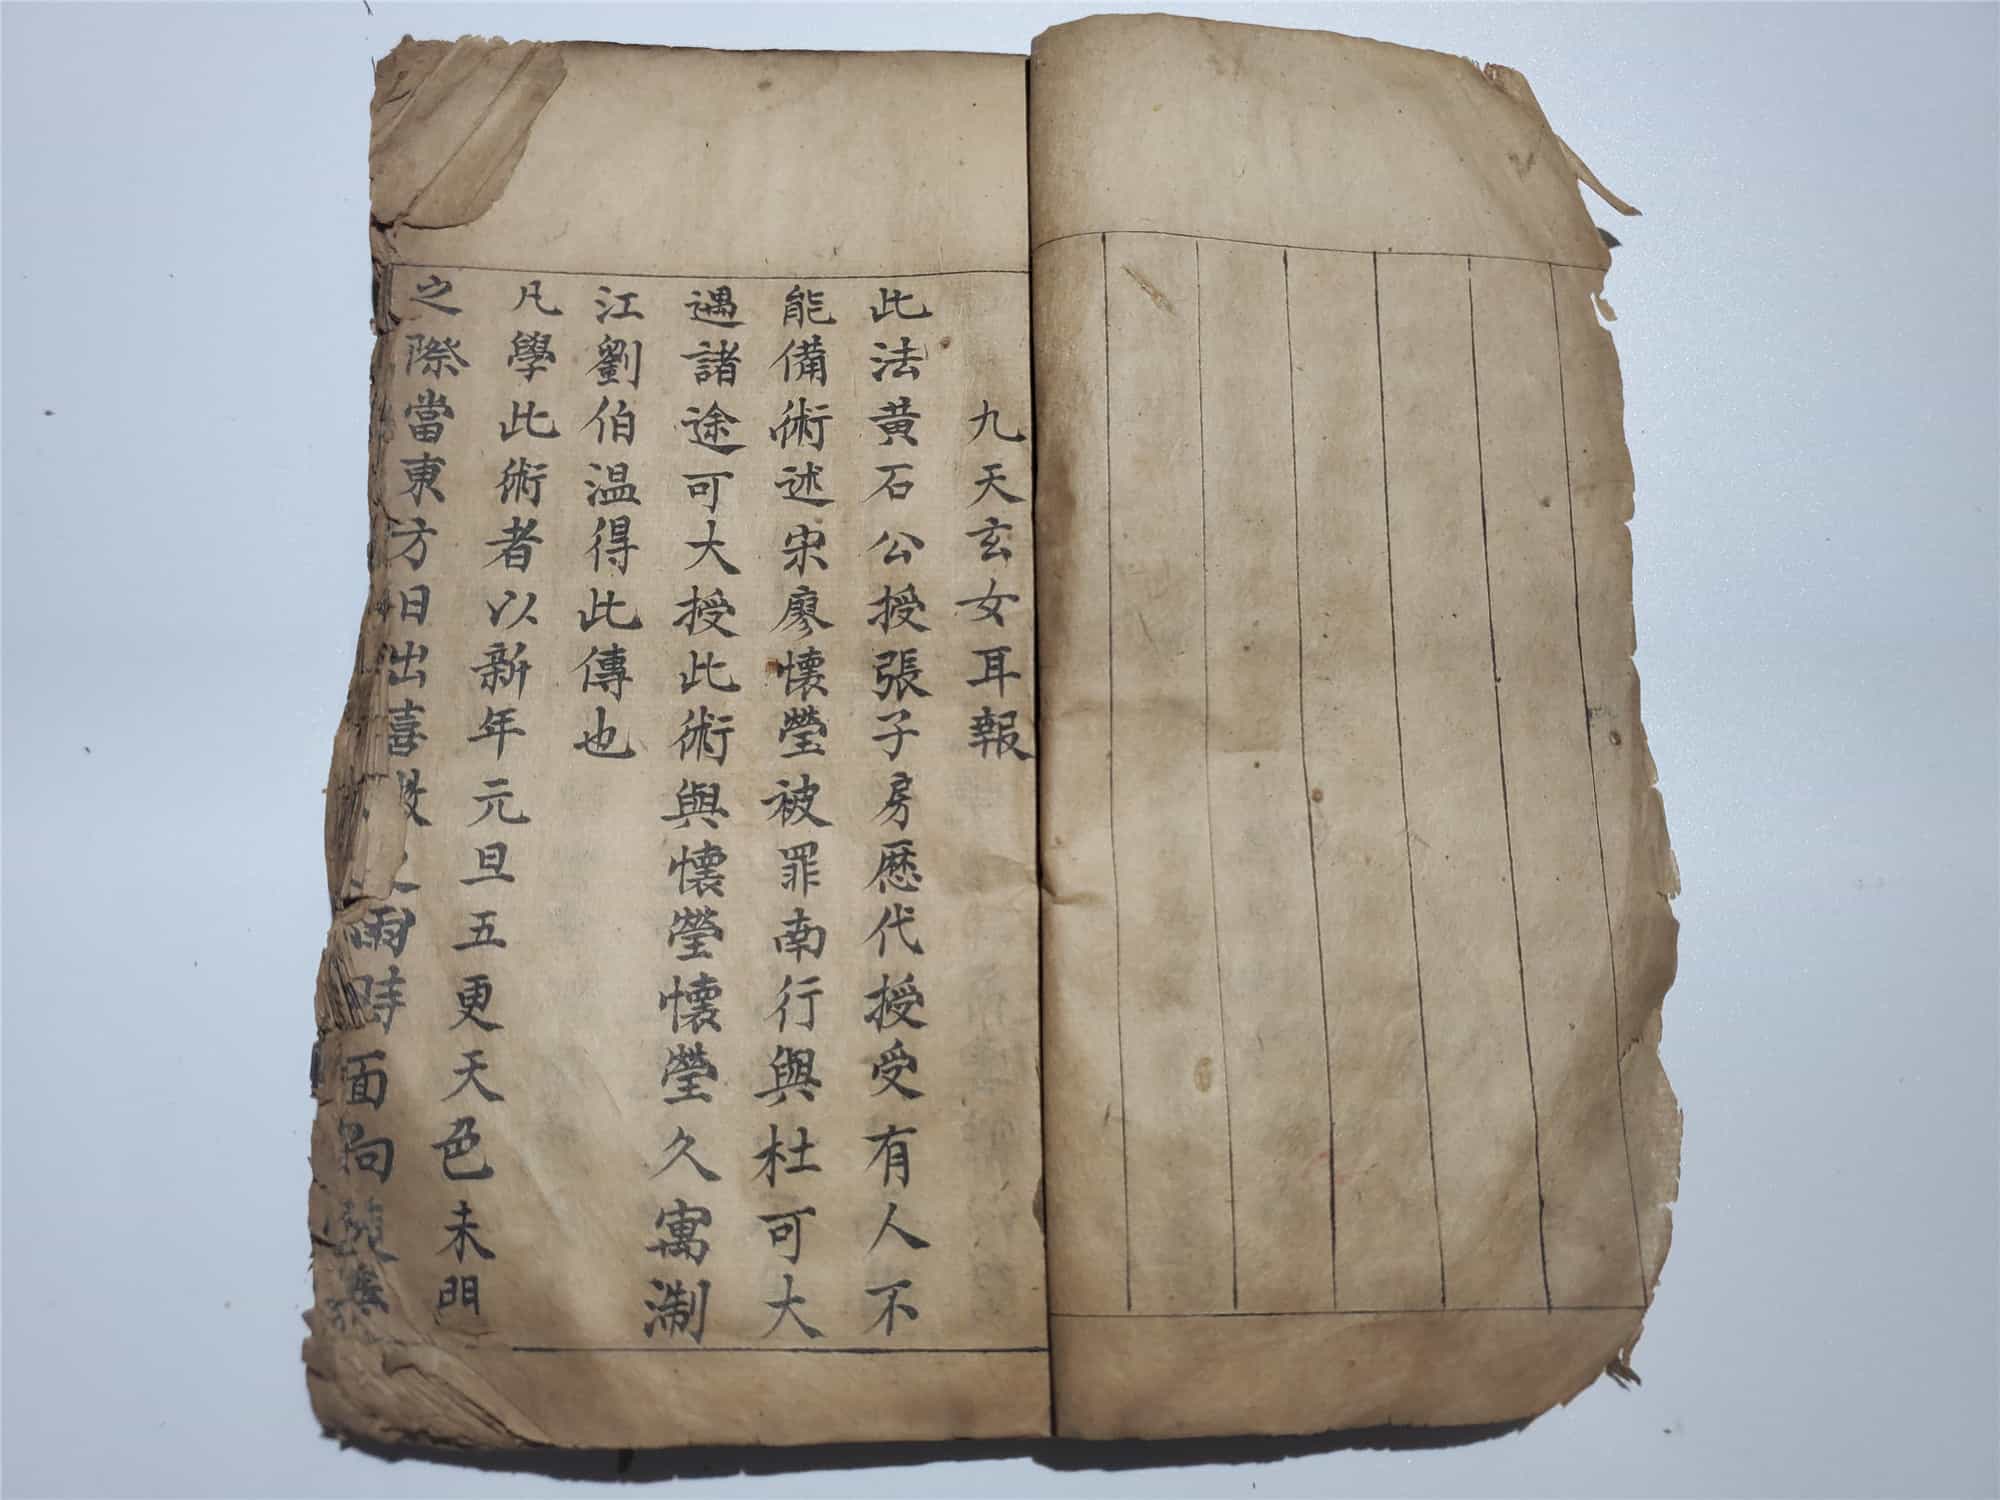 九天玄女耳報
此法黃石公授張子房歷代授受有人不
能備術述宋廖懷瑩被罪南行與杜可大
遇諸途可大授此術與懷瑩懷瑩久寓淛
江劉伯温得此傳也
凡學此術者以新年元旦五更天色未開
之際當東方日出喜雨時面向